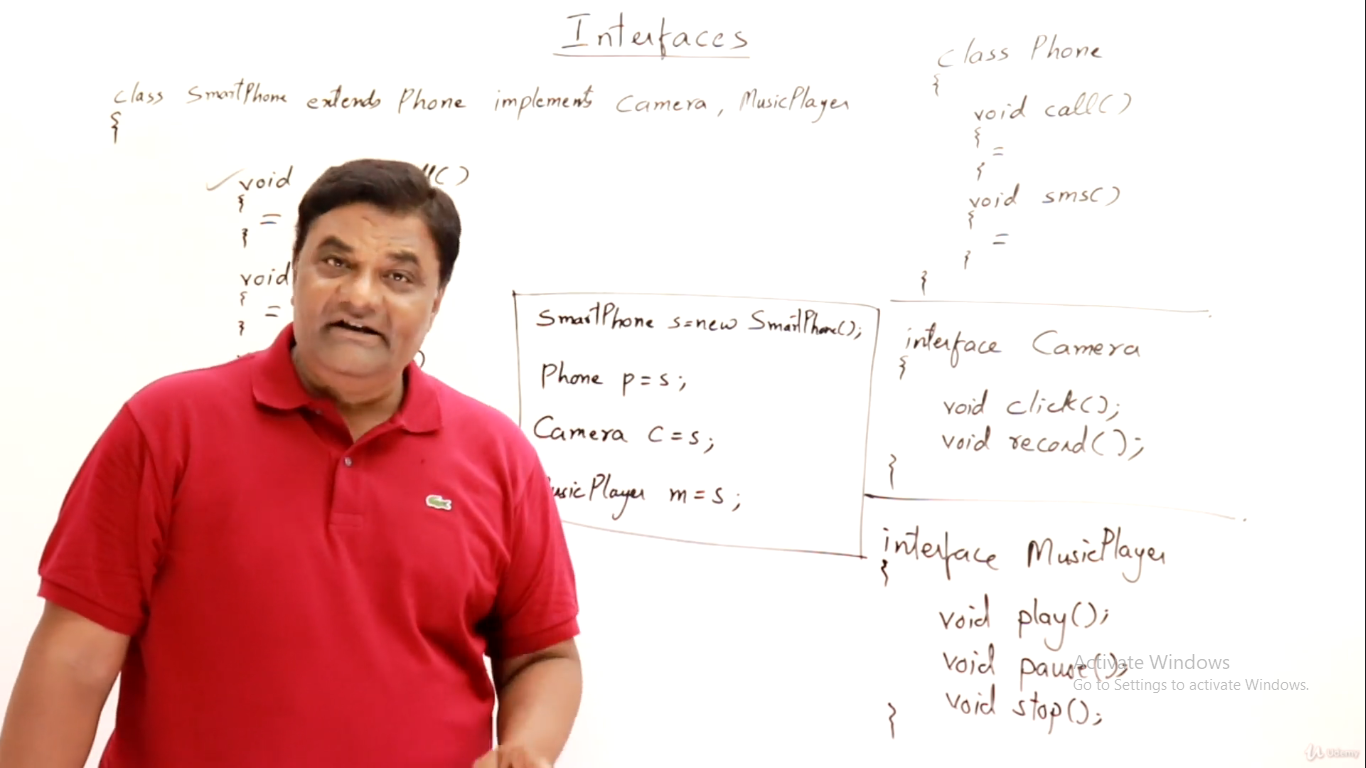 Interfaces
class SmartPhone extends Phone implements Camera, MusicPlayer
{
void ll()
{
=
}
void
{
=
}
)
SmartPhone s=new SmartPhone();
Phone p=s;
Camera c=s;
usicPlayer m=s;
class Phone
{
void call()
{
=
}
void sms()
{
=
}
}
interface Camera
{
void click();
void record();
}
interface MusicPlayer
{
void play();
void pause();
void stop();
}
Activate Windows
Go to Settings to activate Windows.
Udemy